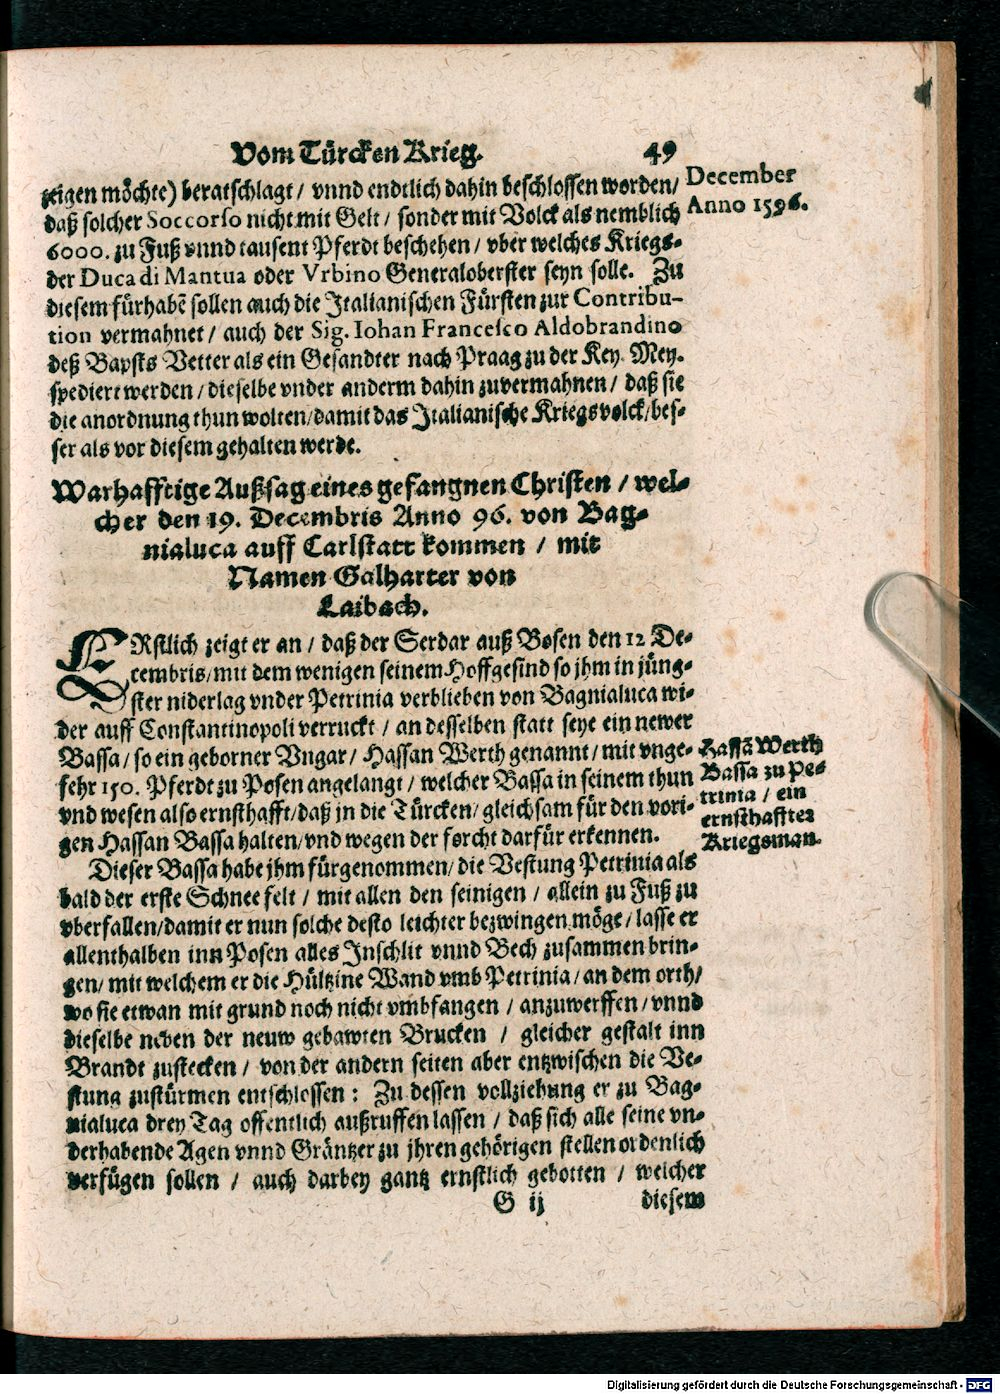 Vom Türcken Krieg. 49
zeigen möchte) beratschlagt / vnnd endtlich dahin beschlossen worden/
December
Anno 1596.
daß solcher Soccorso nicht mit Gelt / sonder mit Volck als nemblich
6000. zu Fuß vnnd tausent Pferdt beschehen / vber welches Kriegs-
der Duca di Mantua oder Vrbino Generaloberster seyn solle. Zu
diesem fürhabẽ sollen auch die Italianischen Fürsten zur Contribu-
tion vermahnet / auch der Sig. Iohan Francesco Aldobrandino
deß Bapsts Vetter als ein Gesandter nach Praag zu der Key. Mey.
spediert werden / dieselbe vnder anderm dahin zuvermahnen / daß sie
die anordnung thun wolten/damit das Italianische Kriegsvolck/bes-
ser als vor diesem gehalten werde.
Warhafftige Außsag eines gefangnen Christen / wel-
cher den 19. Decembris Anno 96. von Bag-
nialuca auff Carlstatt kommen / mit
Namen Galharter von
Laibach.
ERstlich zeigt er an / daß der Serdar auß Bosen den 12 De-
cembris/mit dem wenigen seinem Hoffgesind so jhm in jüng-
ster niderlag vnder Petrinia verblieben von Bagnialuca wi-
der auff Constantinopoli verruckt / an desselben statt seye ein newer
Bassa / so ein geborner Vngar / Hassan Werth genannt / mit vnge-
fehr 150. Pferdt zu Posen angelangt / welcher Bassa in seinem thun
vnd wesen also ernsthafft/daß in die Türcken/ gleichsam für den vori-
gen Hassan Bassa halten/vnd wegen der forcht darfür erkennen.
Hassã Werth
Bassa zu Pe-
trinia / ein
ernsthaffter
Kriegsman.
Dieser Bassa habe jhm fürgenommen/ die Vestung Petrinia als
bald der erste Schnee felt / mit allen den seinigen / allein zu Fuß zu
vberfallen/damit er nun solche desto leichter bezwingen möge / lasse er
allenthalben inn Posen alles Inschlit vnnd Bech zusammen brin-
gen/ mit welchem er die Hültzine Wand vmb Petrinia / an dem orth/
wo sie etwan mit grund noch nicht vmbfangen / anzuwerffen / vnnd
dieselbe neben der neuw gebawten Brucken / gleicher gestalt inn
Brandt zustecken / von der andern seiten aber entzwischen die Ve-
stung zustürmen entschlossen : Zu dessen vollziehung er zu Bag-
nialuca drey Tag offentlich außruffen lassen / daß sich alle seine vn-
derhabende Agen vnnd Gräntzer zu jhren gehörigen stellen ordenlich
verfügen sollen / auch darbey gantz ernstlich gebotten / welcher
G ij diesem
Digitalisierung gefördert durch die Deutsche Forschungsgemeinschaft - DFG